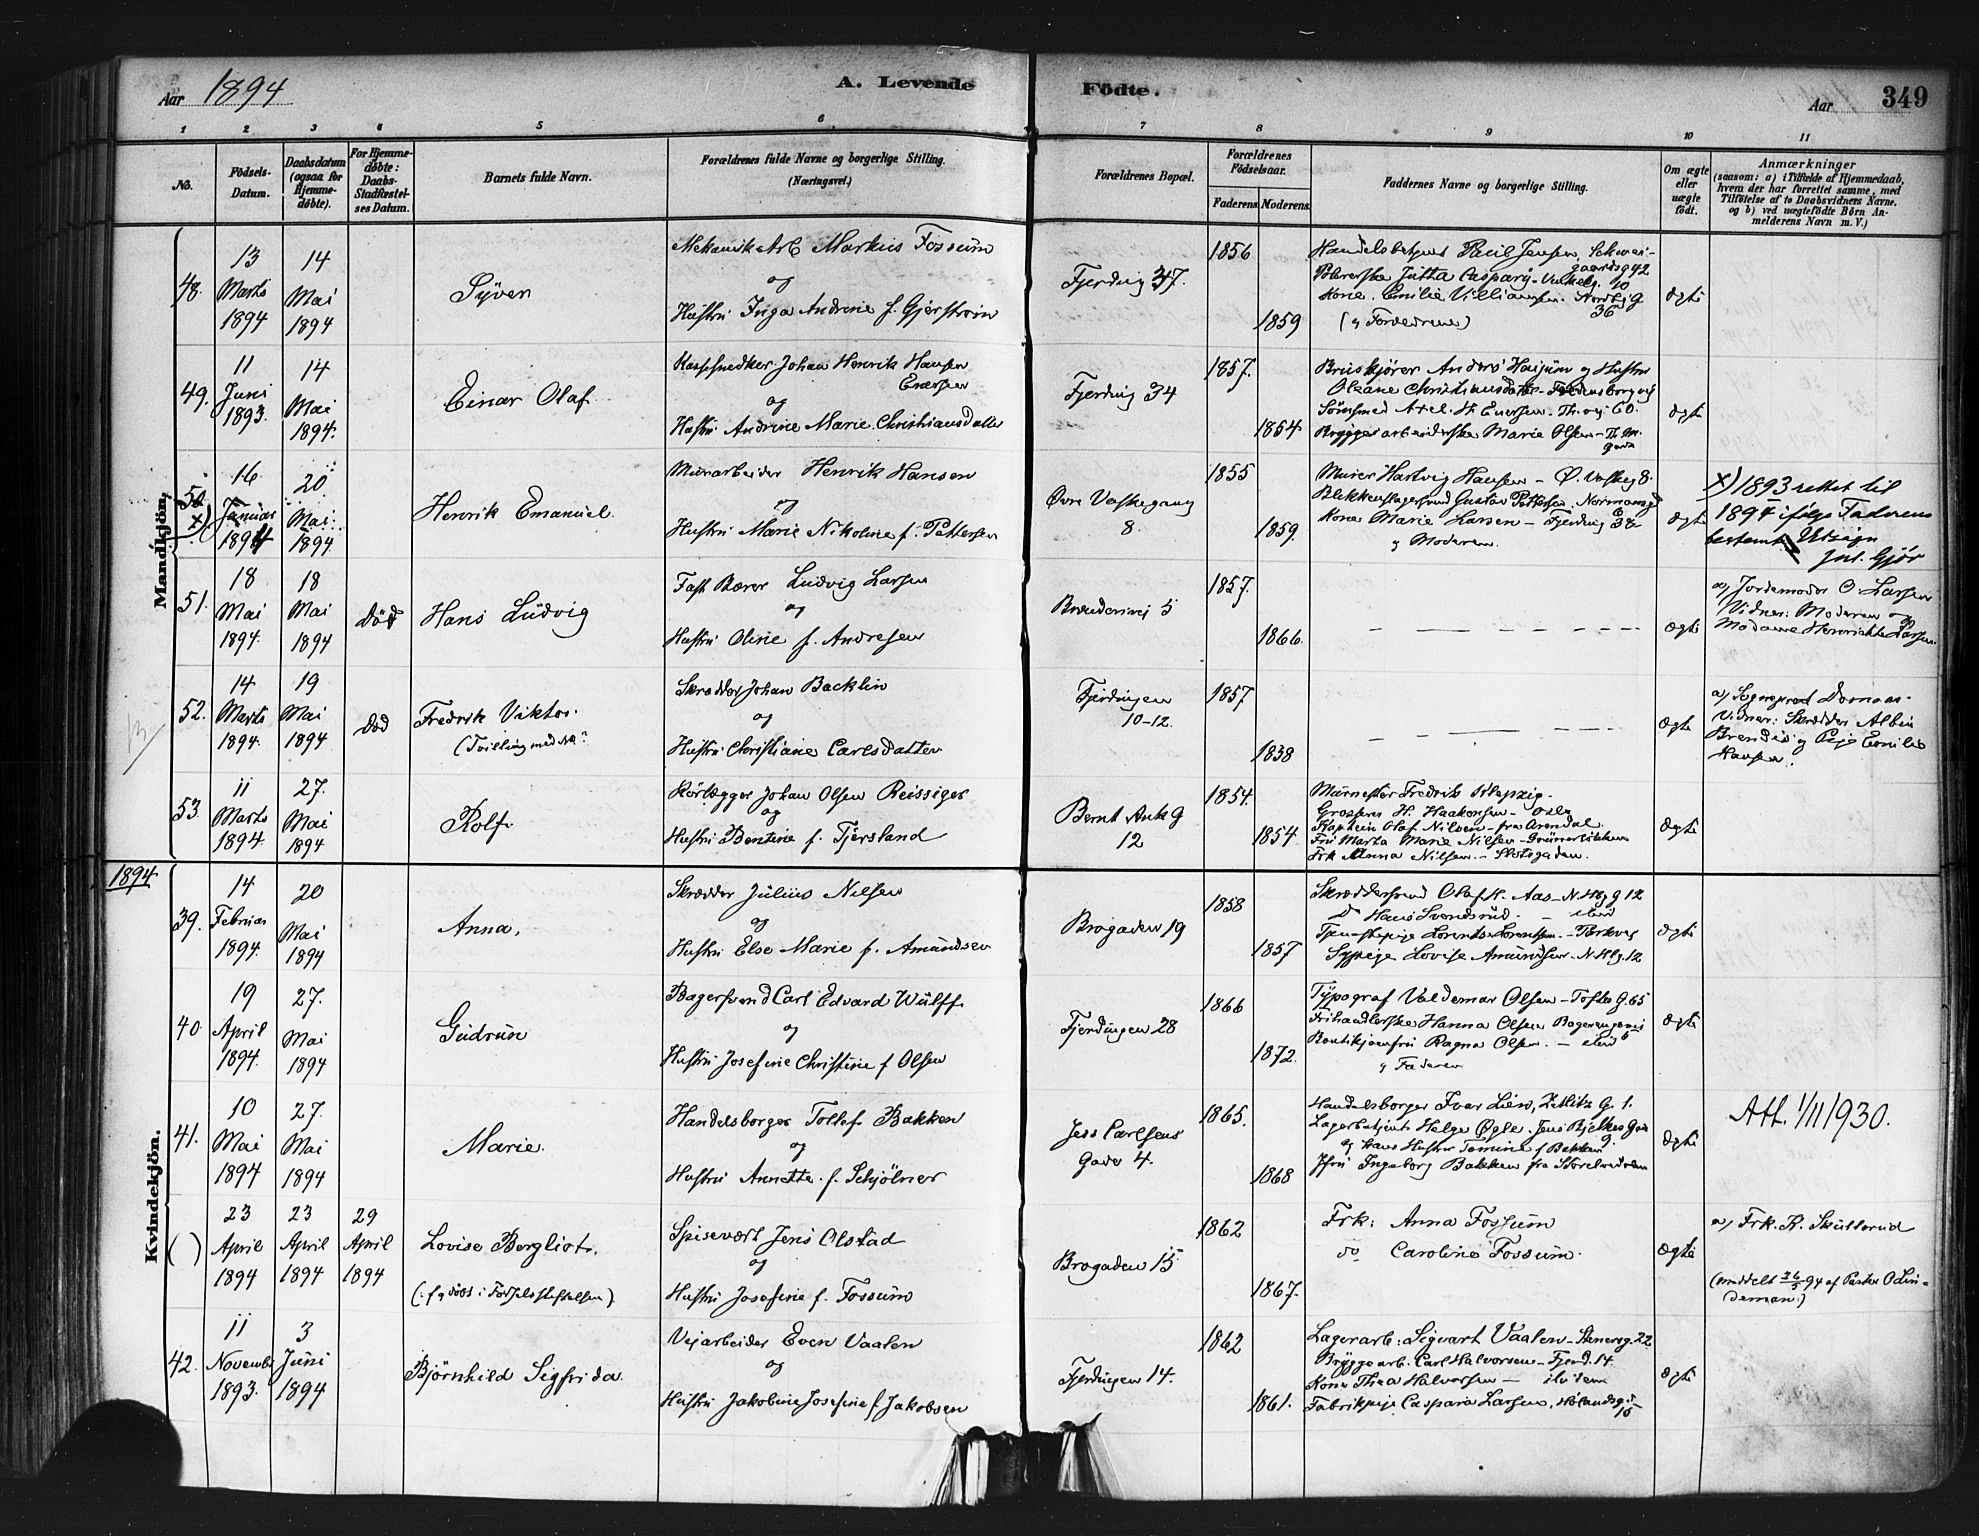 Aar 1894
A. Levende Fødte.
Aar 349
1 2 3 4 5 6 7 8 9 10 11
No.
Födsels-Datum.
Daabsdatum (ogsaa for Hjemme-døbte).
For Hjemme-døbte: Daabs-Stadfæstel-ses Datum.
Barnets fulde Navn.
Forældrenes fulde Navne og borgerlige Stilling. (Næringsvei.)
Forældrenes Bopæl.
Forældrenes Fødselsaar.
Faderens Moderens.
Faddernes Navne og borgerlige Stilling.
Om ægte eller uægte født.
Anmærkninger (saasom: a) i Tilfælde af Hjemmedaab, hvem der har forrettet samme, med Tilføielse af to Daabsvidners Navne. og b) ved uægtefødte Børn An-melderens Navn m. V.)
Mandkjön.
48. 13 Marts 1894
14 Mai 1894
Syver
Mekanisk Arb Markus Fossum
og
Hustru Inga Andrine f. Gjerstrøm
Fjerding 37.
1856
1859
Handelsbetjent Paul Jensen,
Jutta Caspary
Kone Emilie Villiamsen
36
(og Forældrene)
Ægte
49. 11 Juni 1893.
14 Mai 1894.
Einar Olaf
Johan Henrik Hansen
Enersen
og
Hustru Andrine Marie Christiansdatter
Fjerding 34
1857.
1854
Anders og Hustru
Oleane Christiansdatter - Fredensborgvej
Axel H. Enersen - Th. vej 60.
Bryggeriarbeiderske Marie Olsen
Ægte
50. x) 16 Januar 1894
20 Mai 1894
Henrik Emanuel.
Murarbeider Henrik Hansen
og
Hustru Marie Nikoline f. Pettersen
Øvre Vaskegang
8.
1855
1859.
Murer Hartvig Hansen - Ø. Vaskeg 8.
Blikkenslagersvend Gustav Pettersen, Normansg
Kone Marie Larsen - Fjerding 38
og Moderen.
Ægte
x) 1893 rettet til
1894 ifølge Faderens
bestemte Udsagn
Jul. Gjør
51. 18 Mai 1894.
18 Mai 1894
død
Hans Ludvig
Fast Bærer Ludvig Larsen
og
Hustru Oline f. Andresen
Brænderivej 5
1857.
1866.
Ægte
a) Jordemoder O. Larsen
Vidner: Moderen og
Madame Henriette Larsen.
52. 14 Marts 1894.
19 Mai 1894
død
Fredrik Viktor.
(Tvilling med No ?
Skrædder Johan Backlin
og
Hustru Christiane Carlsdatter
Fjerdingen
10-12.
1857
1838
Ægte
a) Sogneprest
Vidner: Skrædder Albin
og Pige Emilie
Hansen.
53. 11 Marts 1894.
27. Mai 1894
Rolf
Rörlægger Johan Olsen Reissiger
og
Hustru Bentine f. Tjersland
Bernt Ankg
12
1854.
1854
Murmester Fredrik Leipzig.
Grosserer H. Haakonsen - Oslo
Kaptein Olaf Nilsen - fra Arendal.
Fru Marta Marie Nilsen - Grünerløkken
Frk Anna Nilsen. - Slotsgaden.
Ægte
1894
Kvindekjön.
39. 14 Februar 1894.
20 Mai 1894
Anna.
Skrædder Julius Nilsen
og
Hustru Else Marie f. Amundsen
Brogaden 19
1858
1857
Skræddersvend Olaf H. Aas - N. Hbg g 12
Do Hans Svendsrud. - sted
Tjenestepige Lorentse Lorentsen. - Parkvej
Sypige Lovise Amundsen. N. Hbg. 12
Ægte
40. 19 April 1894.
27. Mai 1894
Gudrun
Bagersvend Carl Edvard Wulff
og
Hustru Josefine Christine f Olsen
Fjerdingen 28
1866
1872.
Typograf Valdemar Olsen - Toftes G. 65
Frihandlerske Hanna Olsen
Ragna Olsen. - sted
og Faderen
Ægte
41. 10 Mai 1894
27. Mai 1894
Marie.
Handelsborger Tollef Bakken
og
Hustru Annette f. Schjølner
Jess Carlsens
Gade 4.
1865.
1868
Handelsborger Ivar Lien, Zetlitz G. 1.
Lagerbetjent Helge Øgle. Jens Bjelkes Gade
og hans Hustru Tomine f Bakken
Jfru Ingeborg Bakken fra Storelvedalen
Ægte
Att. 1/11 1930.
( ) 23 April 1894
23 April 1894
29 April 1894
Lovise Bergliot.
(: født i Fødselsstiftelsen)
Spisevært Jens Olstad
og
Hustru Josefine f. Fossum
Brogaden 15
1862
1867.
Frk: Anna Fossum
do Caroline Fossum.
Ægte
a) Frk. R. Skullerud
(meddelt 26/5 94 af Pastor O Lin-
deman:)
42. 11 November 1893.
3 Juni 1894
Bjørnhild Sigfrida.
Vejarbeider Even Vaalen
og
Hustru Jakobine Josefine f. Jakobsen
Fjerdingen 14.
1862
1861.
Lagerarb: Sigvart Vaalen - Stenersg. 22
Bryggearb. Carl Halvorsen - Fjerd. 14.
Kone Thea Halvorsen - ibidem
Fabrikpige Caspara Larsen, Hølandsg.
15
Ægte